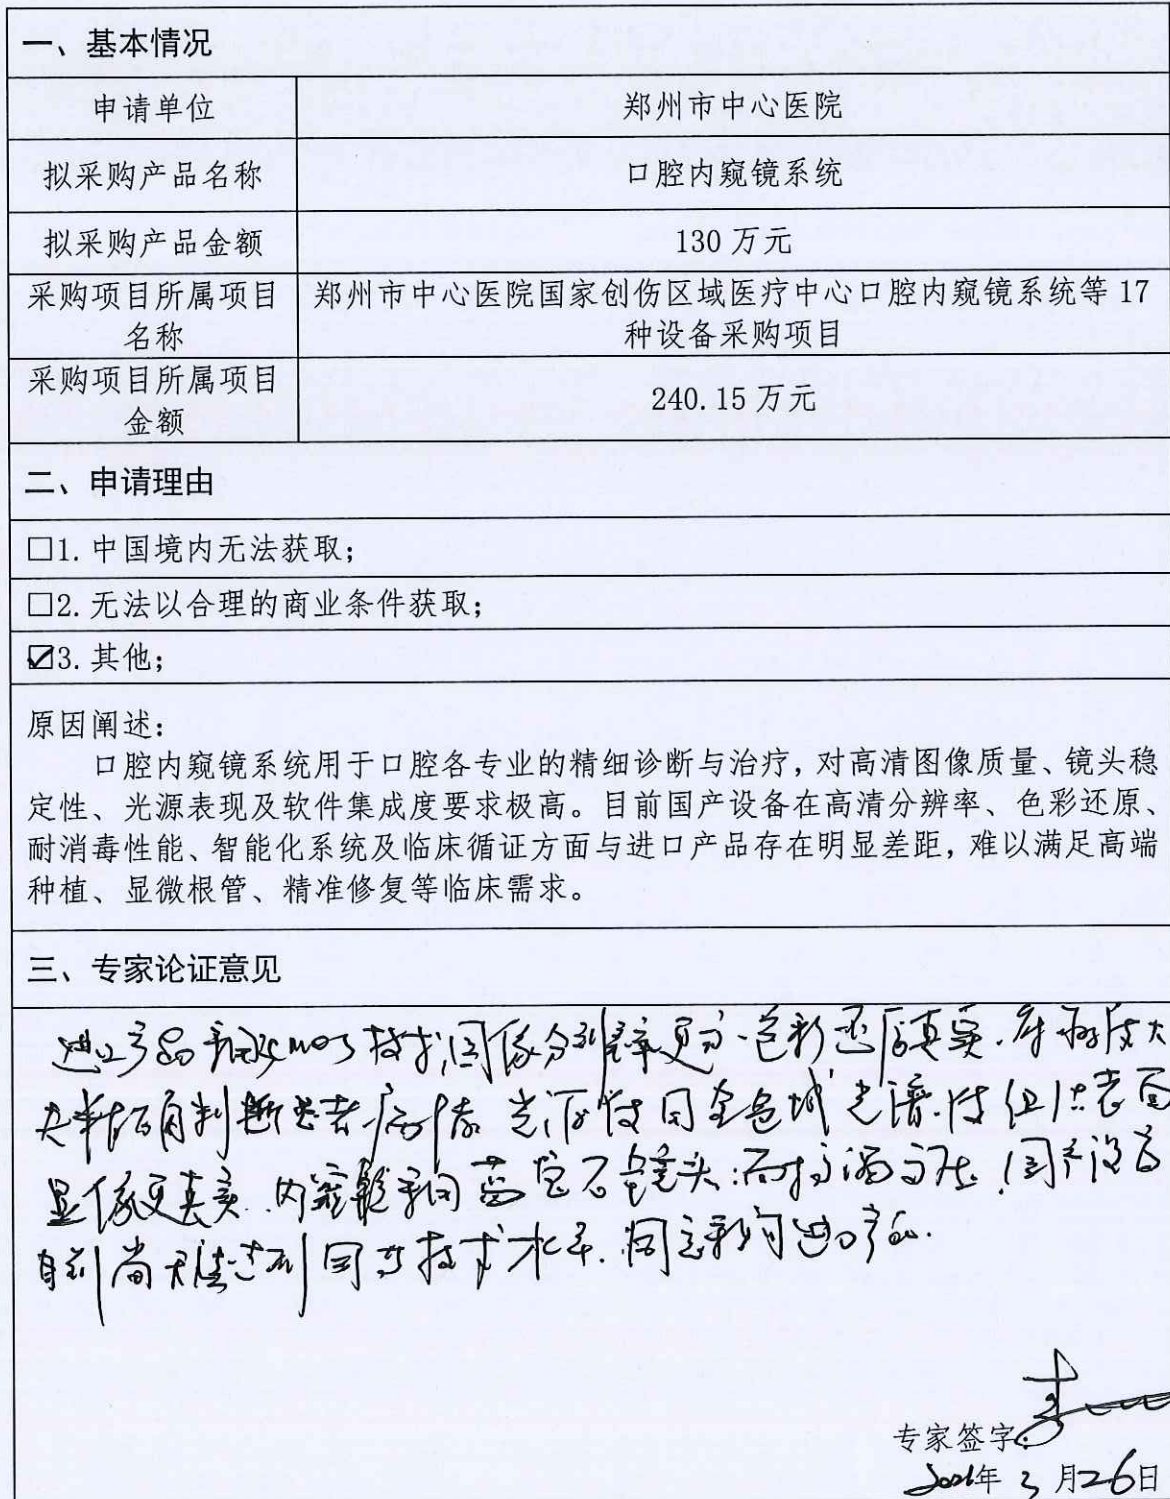 一、基本情况
申请单位
郑州市中心医院
拟采购产品名称
口腔内窥镜系统
拟采购产品金额
130 万元
采购项目所属项目
名称
郑州市中心医院国家创伤区域医疗中心口腔内窥镜系统等 17
种设备采购项目
采购项目所属项目
金额
240.15 万元
二、申请理由
□1. 中国境内无法获取;
□2. 无法以合理的商业条件获取;
☑3. 其他;
原因阐述:
口腔内窥镜系统用于口腔各专业的精细诊断与治疗,对高清图像质量、镜头稳
定性、光源表现及软件集成度要求极高。目前国产设备在高清分辨率、色彩还原、
耐消毒性能、智能化系统及临床循证方面与进口产品存在明显差距,难以满足高端
种植、显微根管、精准修复等临床需求。
三、专家论证意见
进口产品采用 技术,图像分辨率更高、色彩还原真实.
判断患者病情 光源使用全色域光谱.使 表面
显像更真实.内窥镜采用蓝宝石镜头. 国产设备
目前尚难达到同等技术水平.同意采购进口产品.
专家签字:
年 3 月 26 日